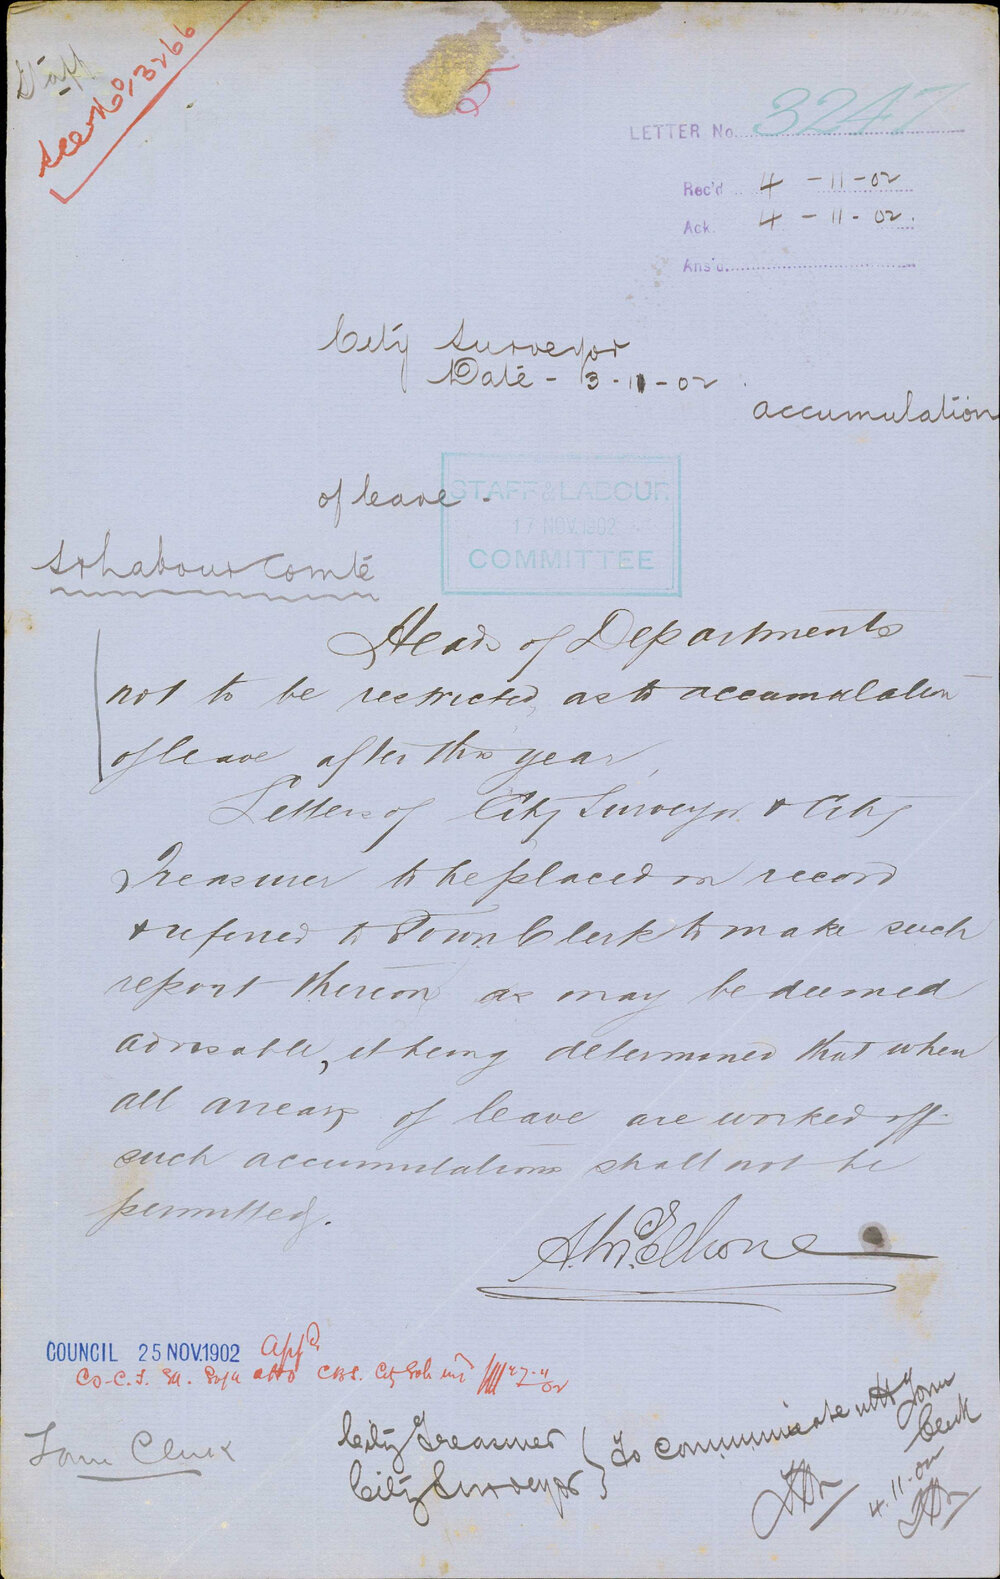 Staff
See No. 3266
LETTER No. 3247
Rec'd 4-11-02
Ack. 4-11-02.
Ans'd.
City Surveyor
Date - 3-11-02
accumulation
of leave.
STAFF & LABOUR
17 NOV. 1902
COMMITTEE
S & Labour Comtē
Heads of Departments
not to be restricted, as to accumulation
of leave after this year,
Letters of City Surveyor & City
Treasurer to be placed on record
& referred to Town Clerk to make such
report thereon as may be deemed
advisable, it being determined that when
all arrears of leave are worked off
such accumulations shall not be
permitted.
COUNCIL 25 NOV. 1902 Appd
Town Clerk
City Treasurer
City Surveyor
To communicate with Town
Clerk
4.11.02